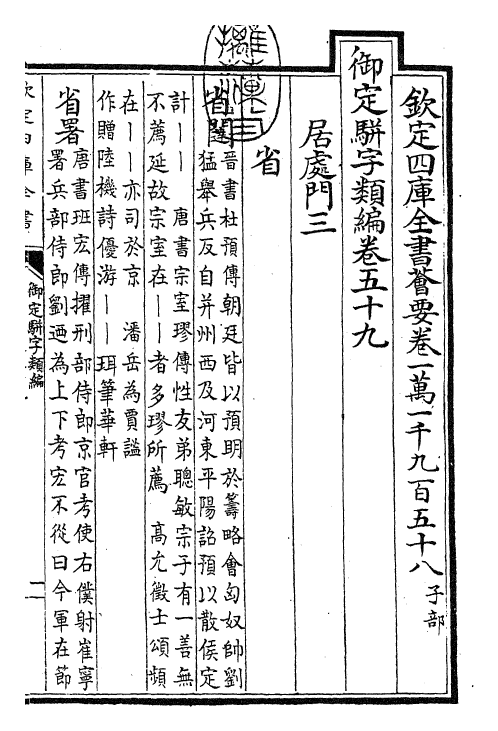 欽定四庫全書薈要卷一萬一千九百五十八 子部
御定駢字類編卷五十九
居處門三
省
省闥 晉書杜預傳朝廷皆以預明於籌略會匈奴帥劉
猛舉兵反自并州西及河東平陽詔預以散侯定
計丨丨 唐書宗室璆傳性友弟聰敏宗子有一善無
不薦延故宗室在丨丨者多璆所薦 高允徵士頌頻
在丨丨亦司於京 潘岳為賈謐
作贈陸機詩優游丨丨珥筆華軒
省署 唐書班宏傳擢刑部侍郎京官考使右僕射崔寧
署兵部侍郎劉迺為上下考宏不從曰今軍在節
欽定四庫全書
御定駢字類編